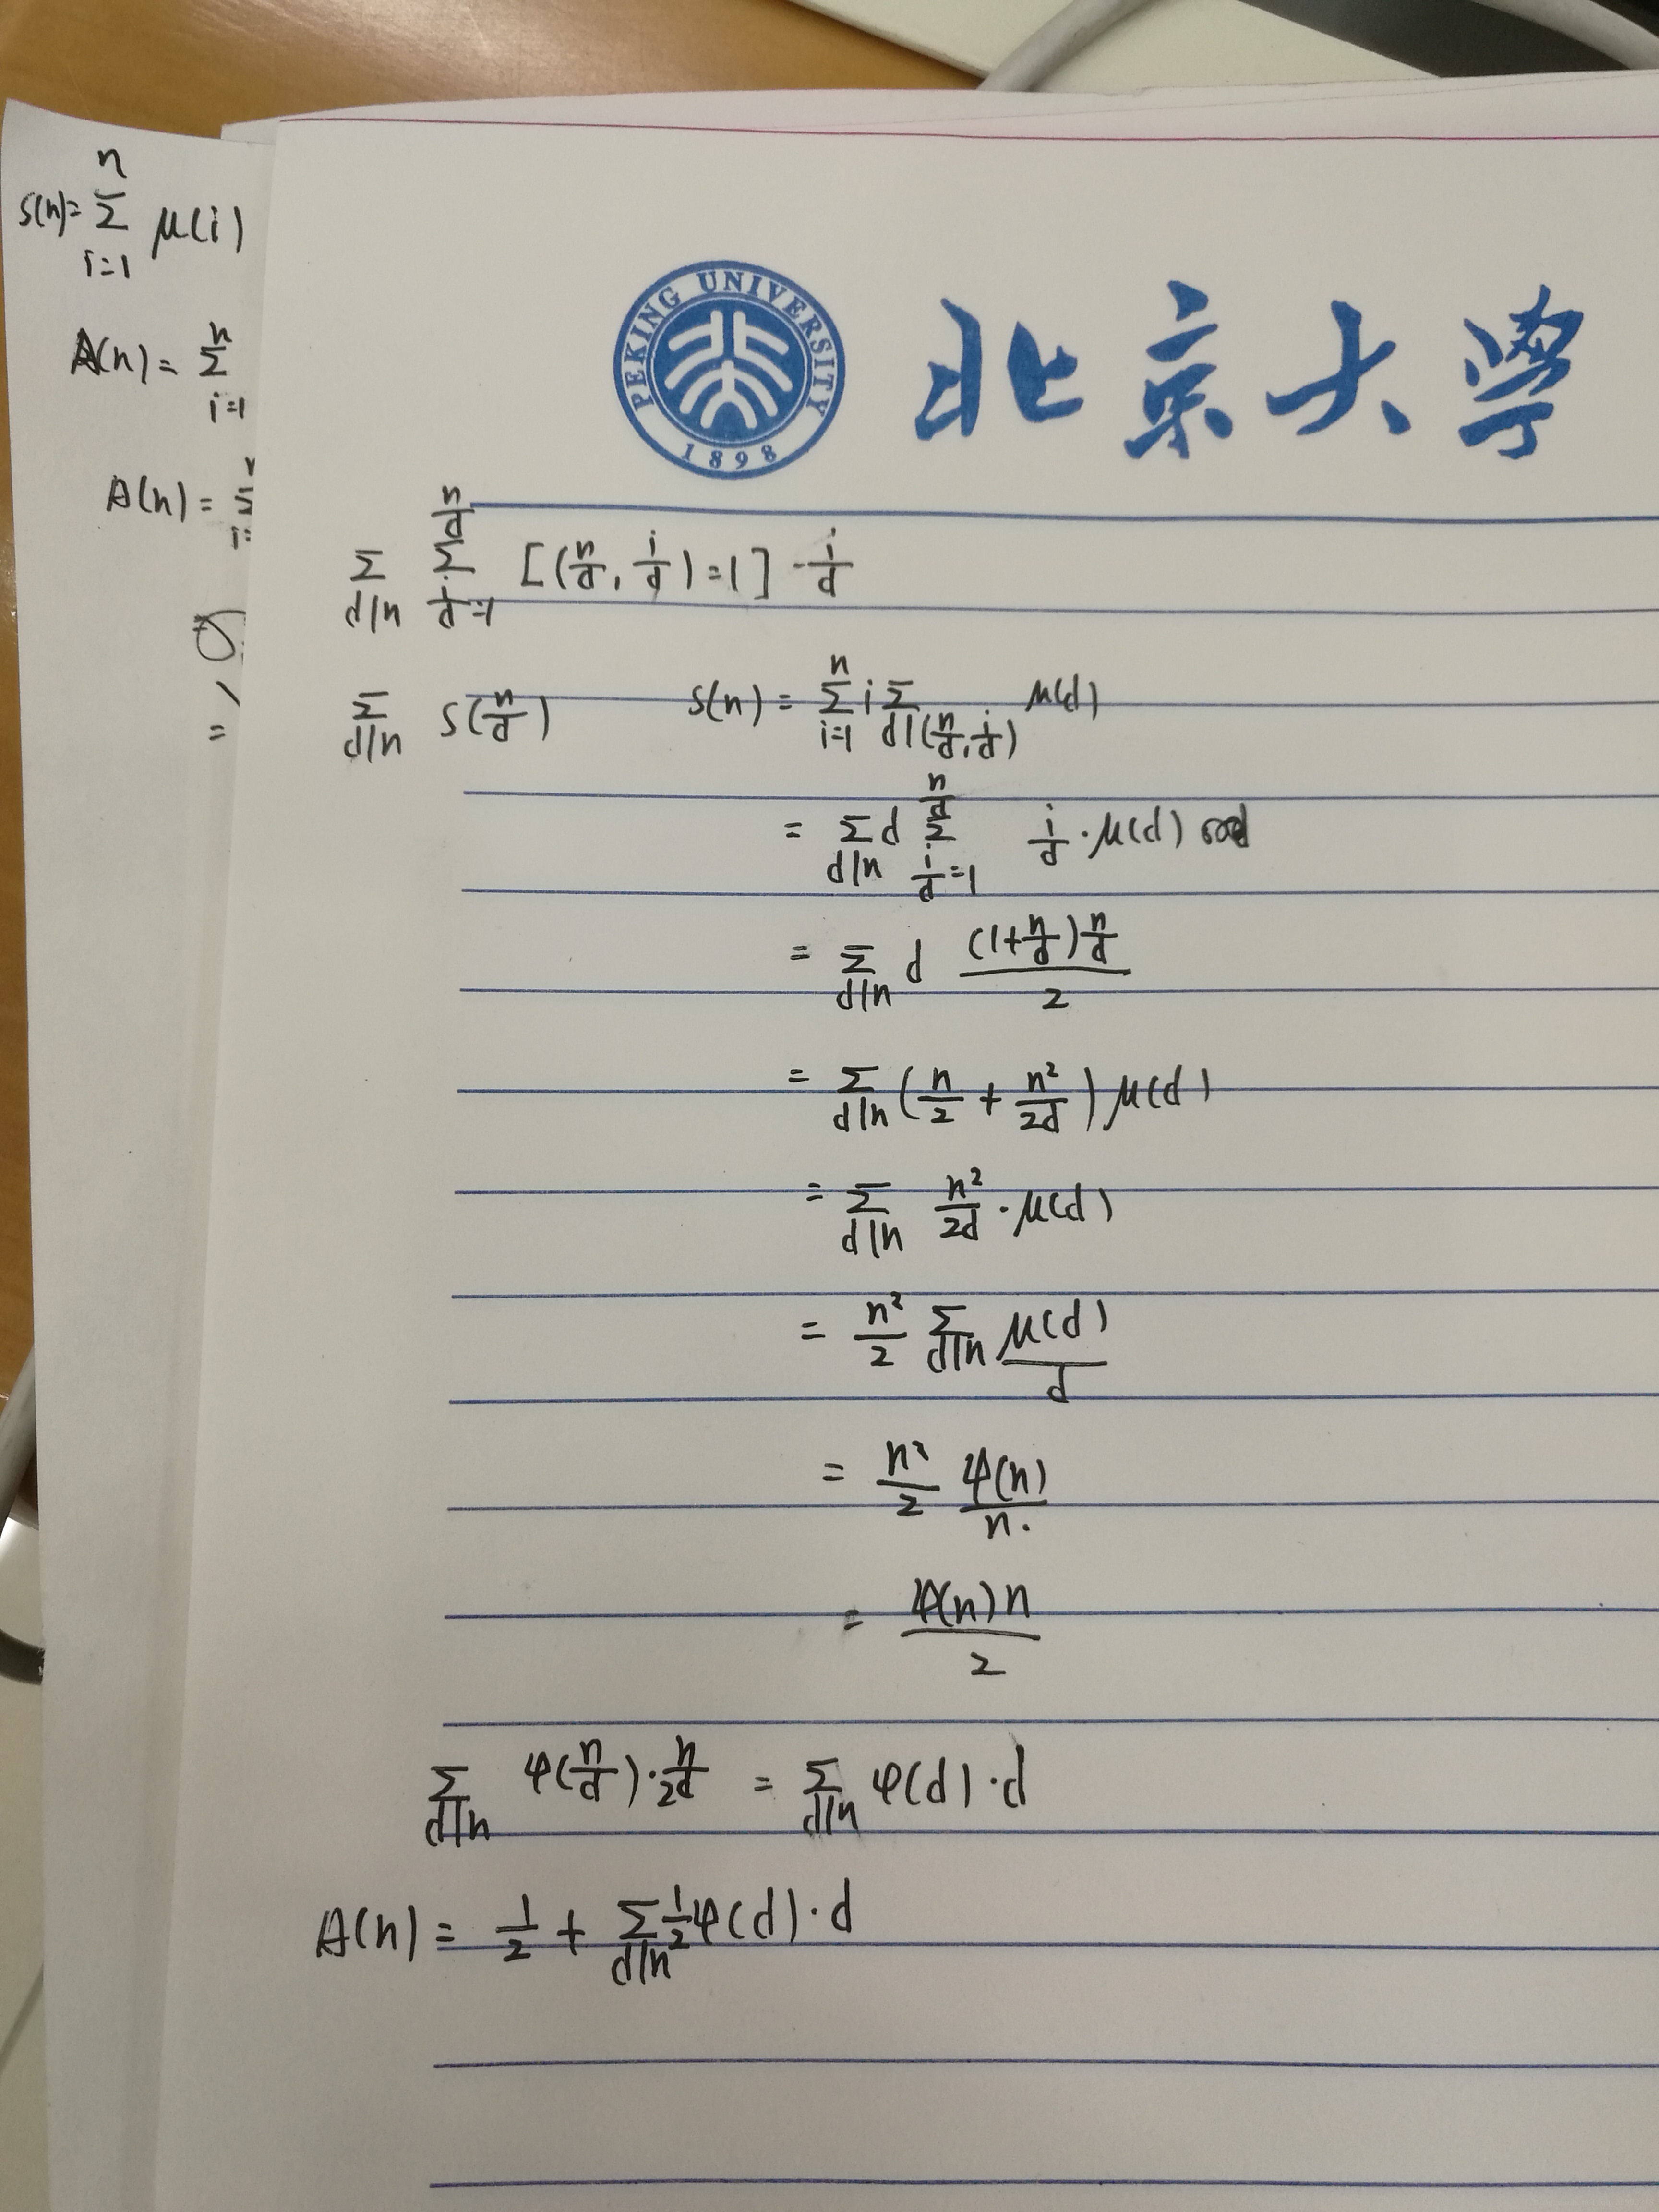 S(n)= Σ_{i=1}^{n} μ(i)
A(n) = Σ_{i=1}^{n}
A(n) =
=
PEKING UNIVERSITY
1898
北京大学
Σ_{d|n} Σ_{i/d=1}^{n/d} [(n/d, i/d)=1] · i/d
Σ_{d|n} S(n/d)
S(n) = Σ_{i=1}^{n} i Σ_{d|(n/d, i/d)} μ(d)
= Σ_{d|n} d Σ_{i/d=1}^{n/d} i/d · μ(d)
= Σ_{d|n} d (1+n/d)n/d / 2
= Σ_{d|n} (n/2 + n²/2d) μ(d)
= Σ_{d|n} n²/2d · μ(d)
= n²/2 Σ_{d|n} μ(d)/d
= n²/2 φ(n)/n.
= φ(n)n/2
Σ_{d|n} φ(n/d) · n/2d = Σ_{d|n} φ(d) · d
A(n) = 1/2 + Σ_{d|n} 1/2 φ(d) · d